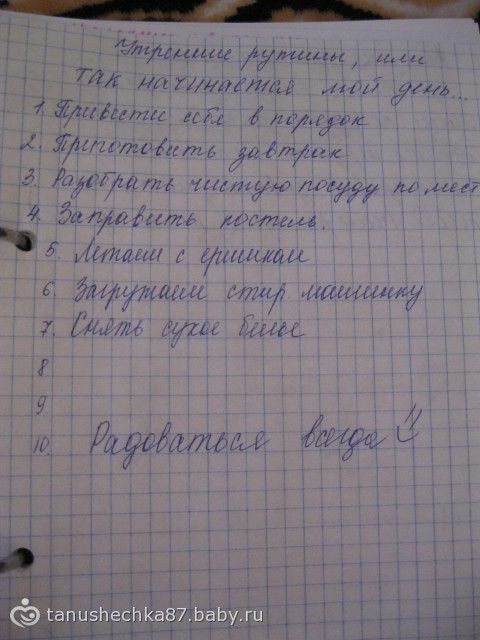 Утренние рутины, или
так начинается мой день...
1. Привести себя в порядок
2. Приготовить завтрак
3. Разобрать чистую посуду по мест
4. Заправить постель.
5. Летаем с ёршиком
6. Загружаем стир машинку
7. Снять сухое белье
8
9
10. Радоваться всегда
tanushechka87.baby.ru